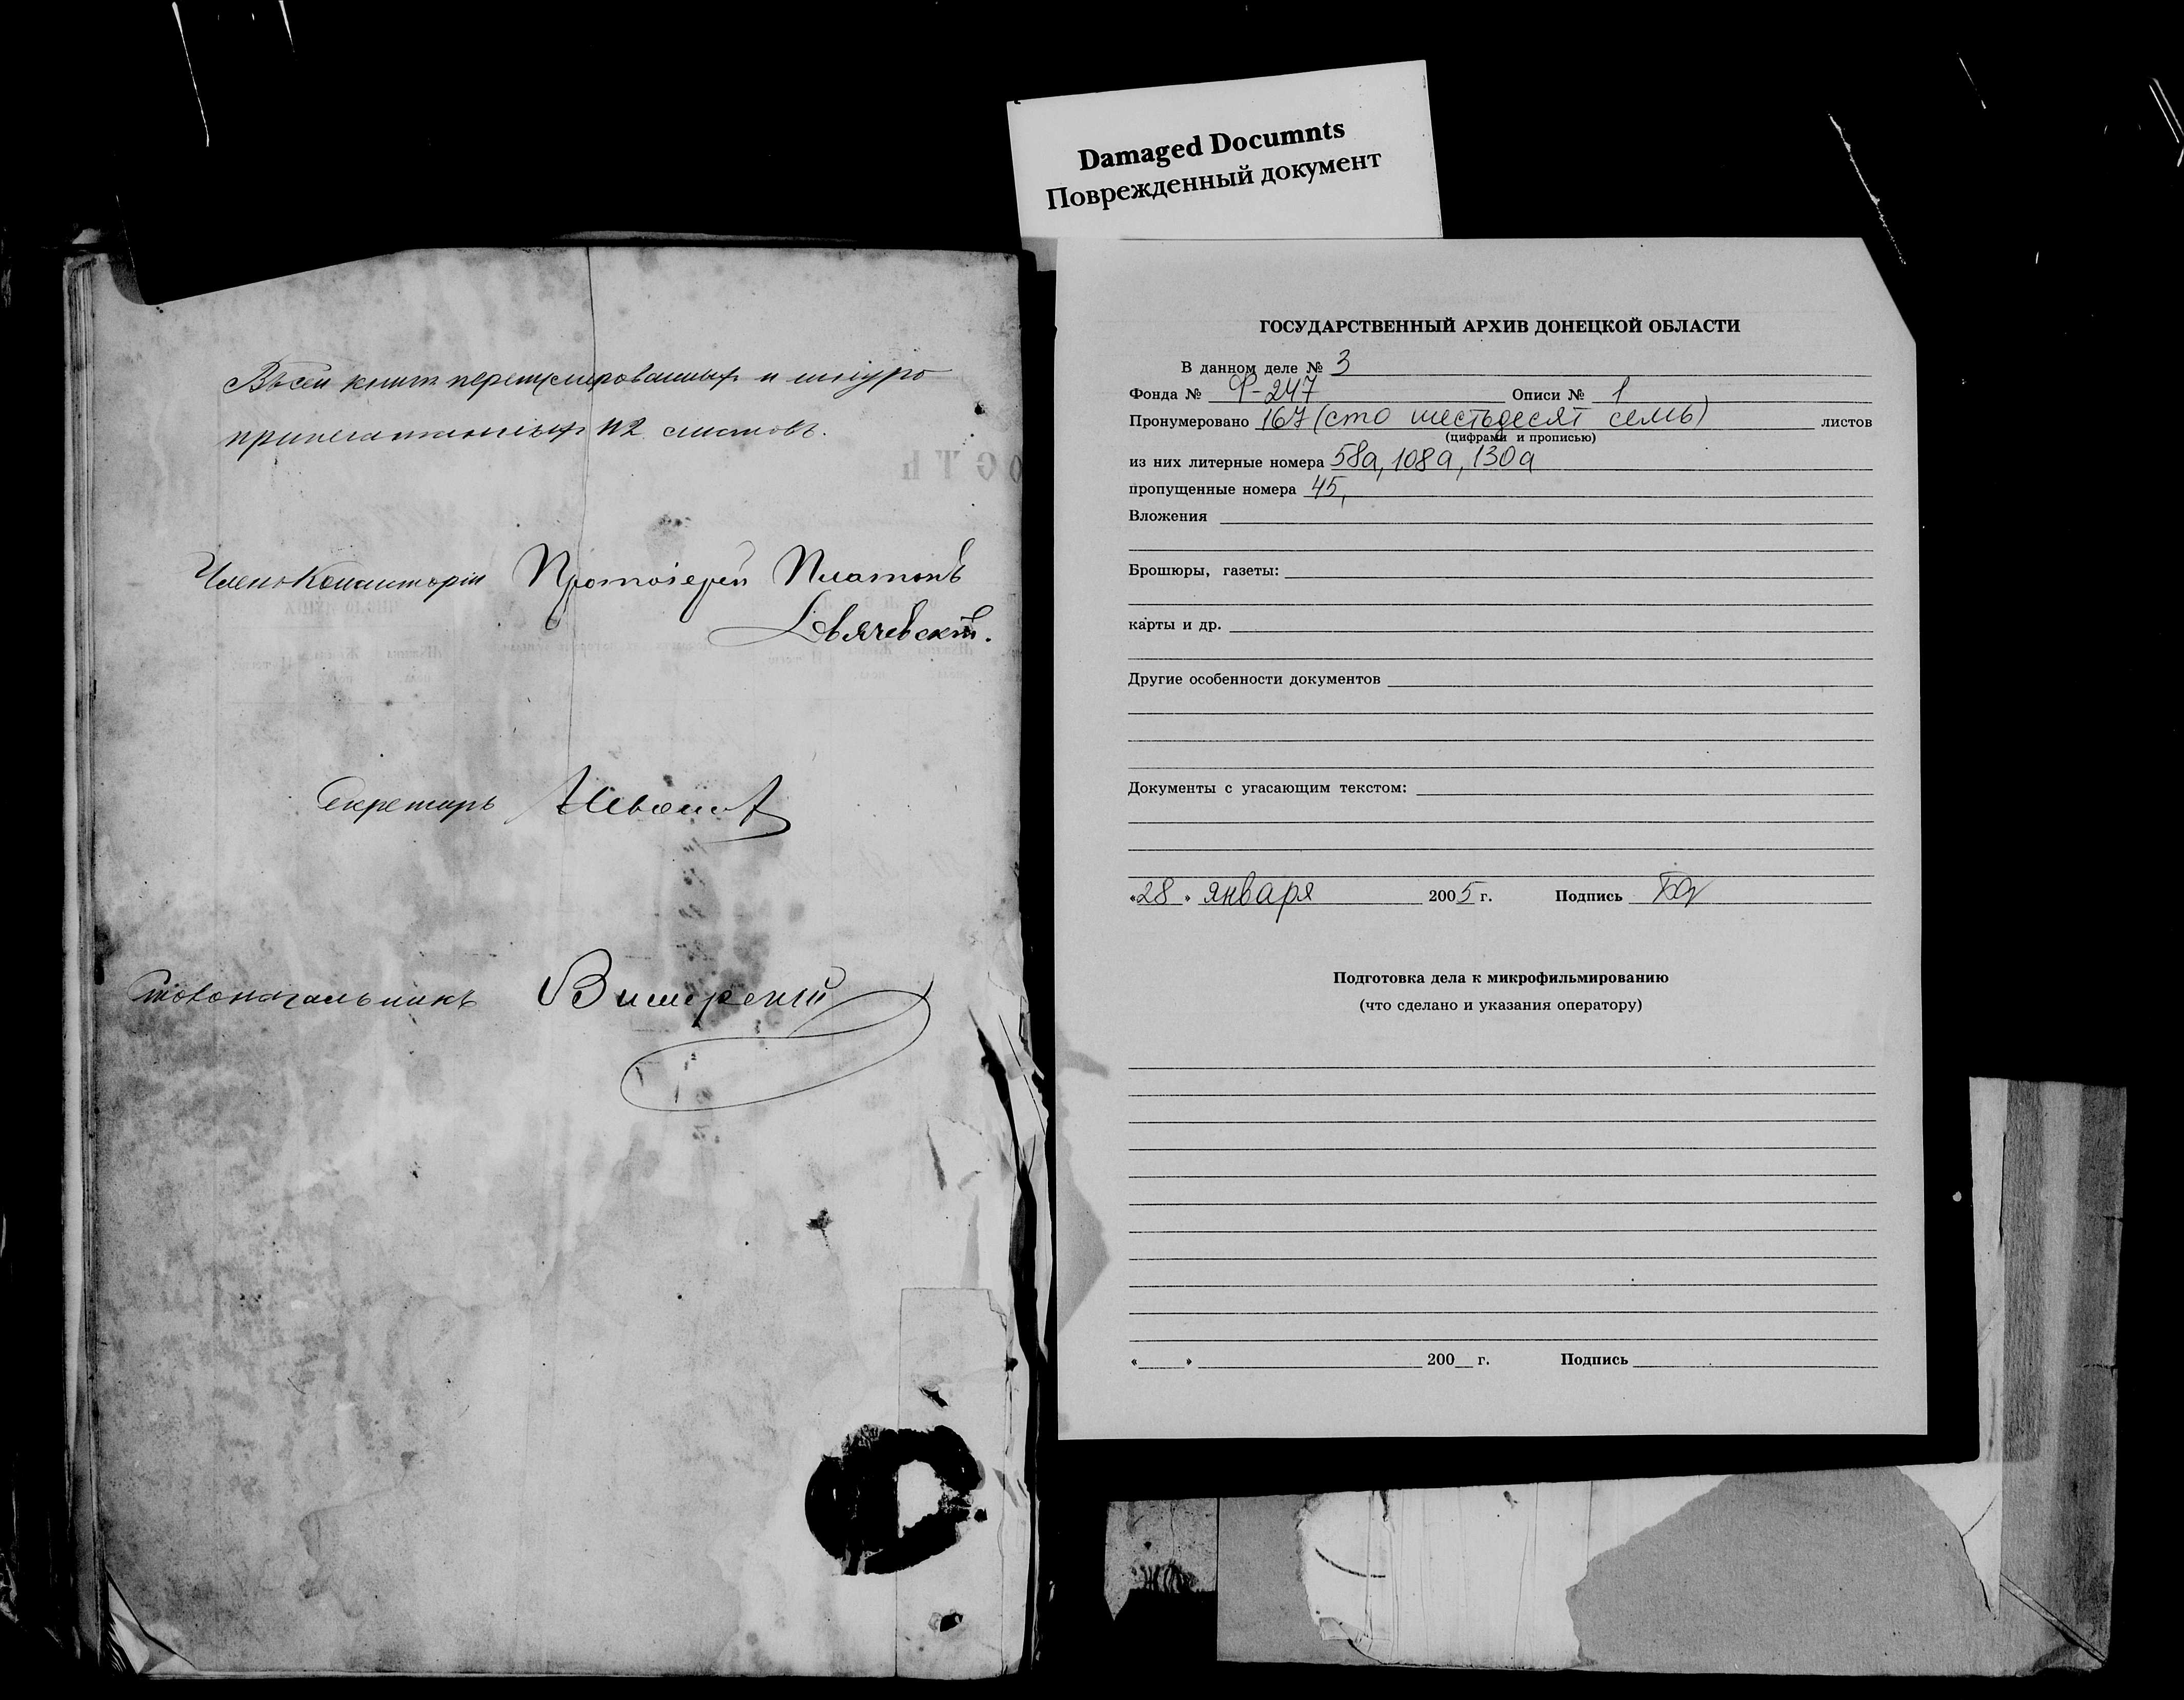 Damaged Documnts
Поврежденный документ
Въ сей книгѣ перенумерованныхъ и шнуро
припечатанныхъ листовъ.
Членъ Консисторіи Протоіерей Платонъ
Секретарь Ивановъ
Столоначальникъ
ГОСУДАРСТВЕННЫЙ АРХИВ ДОНЕЦКОЙ ОБЛАСТИ
В данном деле № 3
Фонда № Ф-247 Описи № 1
Пронумеровано 167 (сто шестьдесят семь) листов
(цифрами и прописью)
из них литерные номера 58а, 108а, 130а
пропущенные номера 45,
Вложения
Брошюры, газеты:
карты и др.
Другие особенности документов
Документы с угасающим текстом:
«28» января 2005 г. Подпись
Подготовка дела к микрофильмированию
(что сделано и указания оператору)
« » 200 г. Подпись